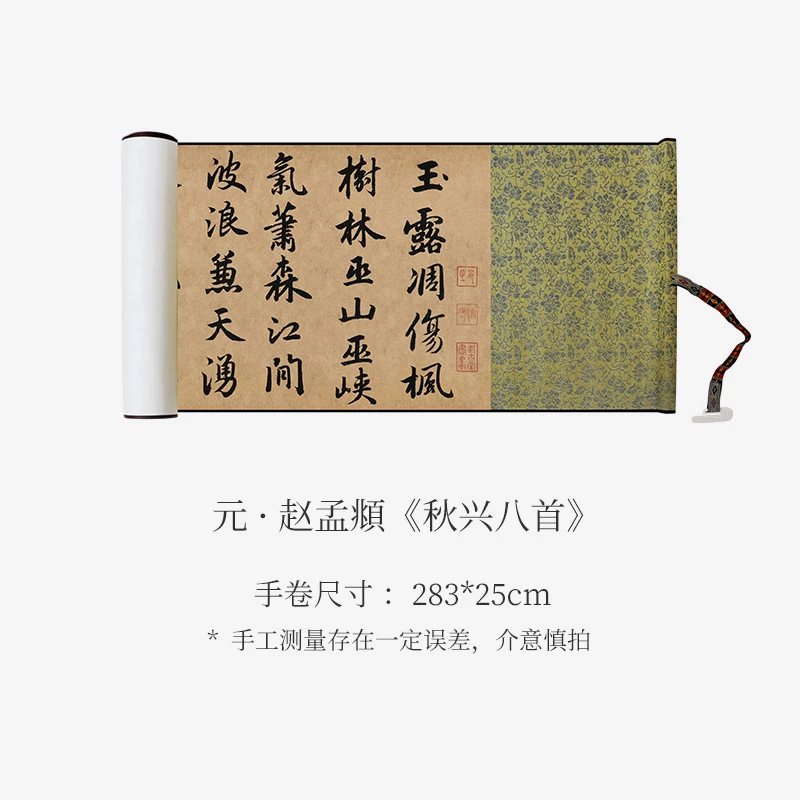 玉露凋傷楓
樹林巫山巫峽
氣蕭森江間
波浪蒹天湧
元·赵孟頫《秋兴八首》
手卷尺寸：283*25cm
* 手工测量存在一定误差，介意慎拍